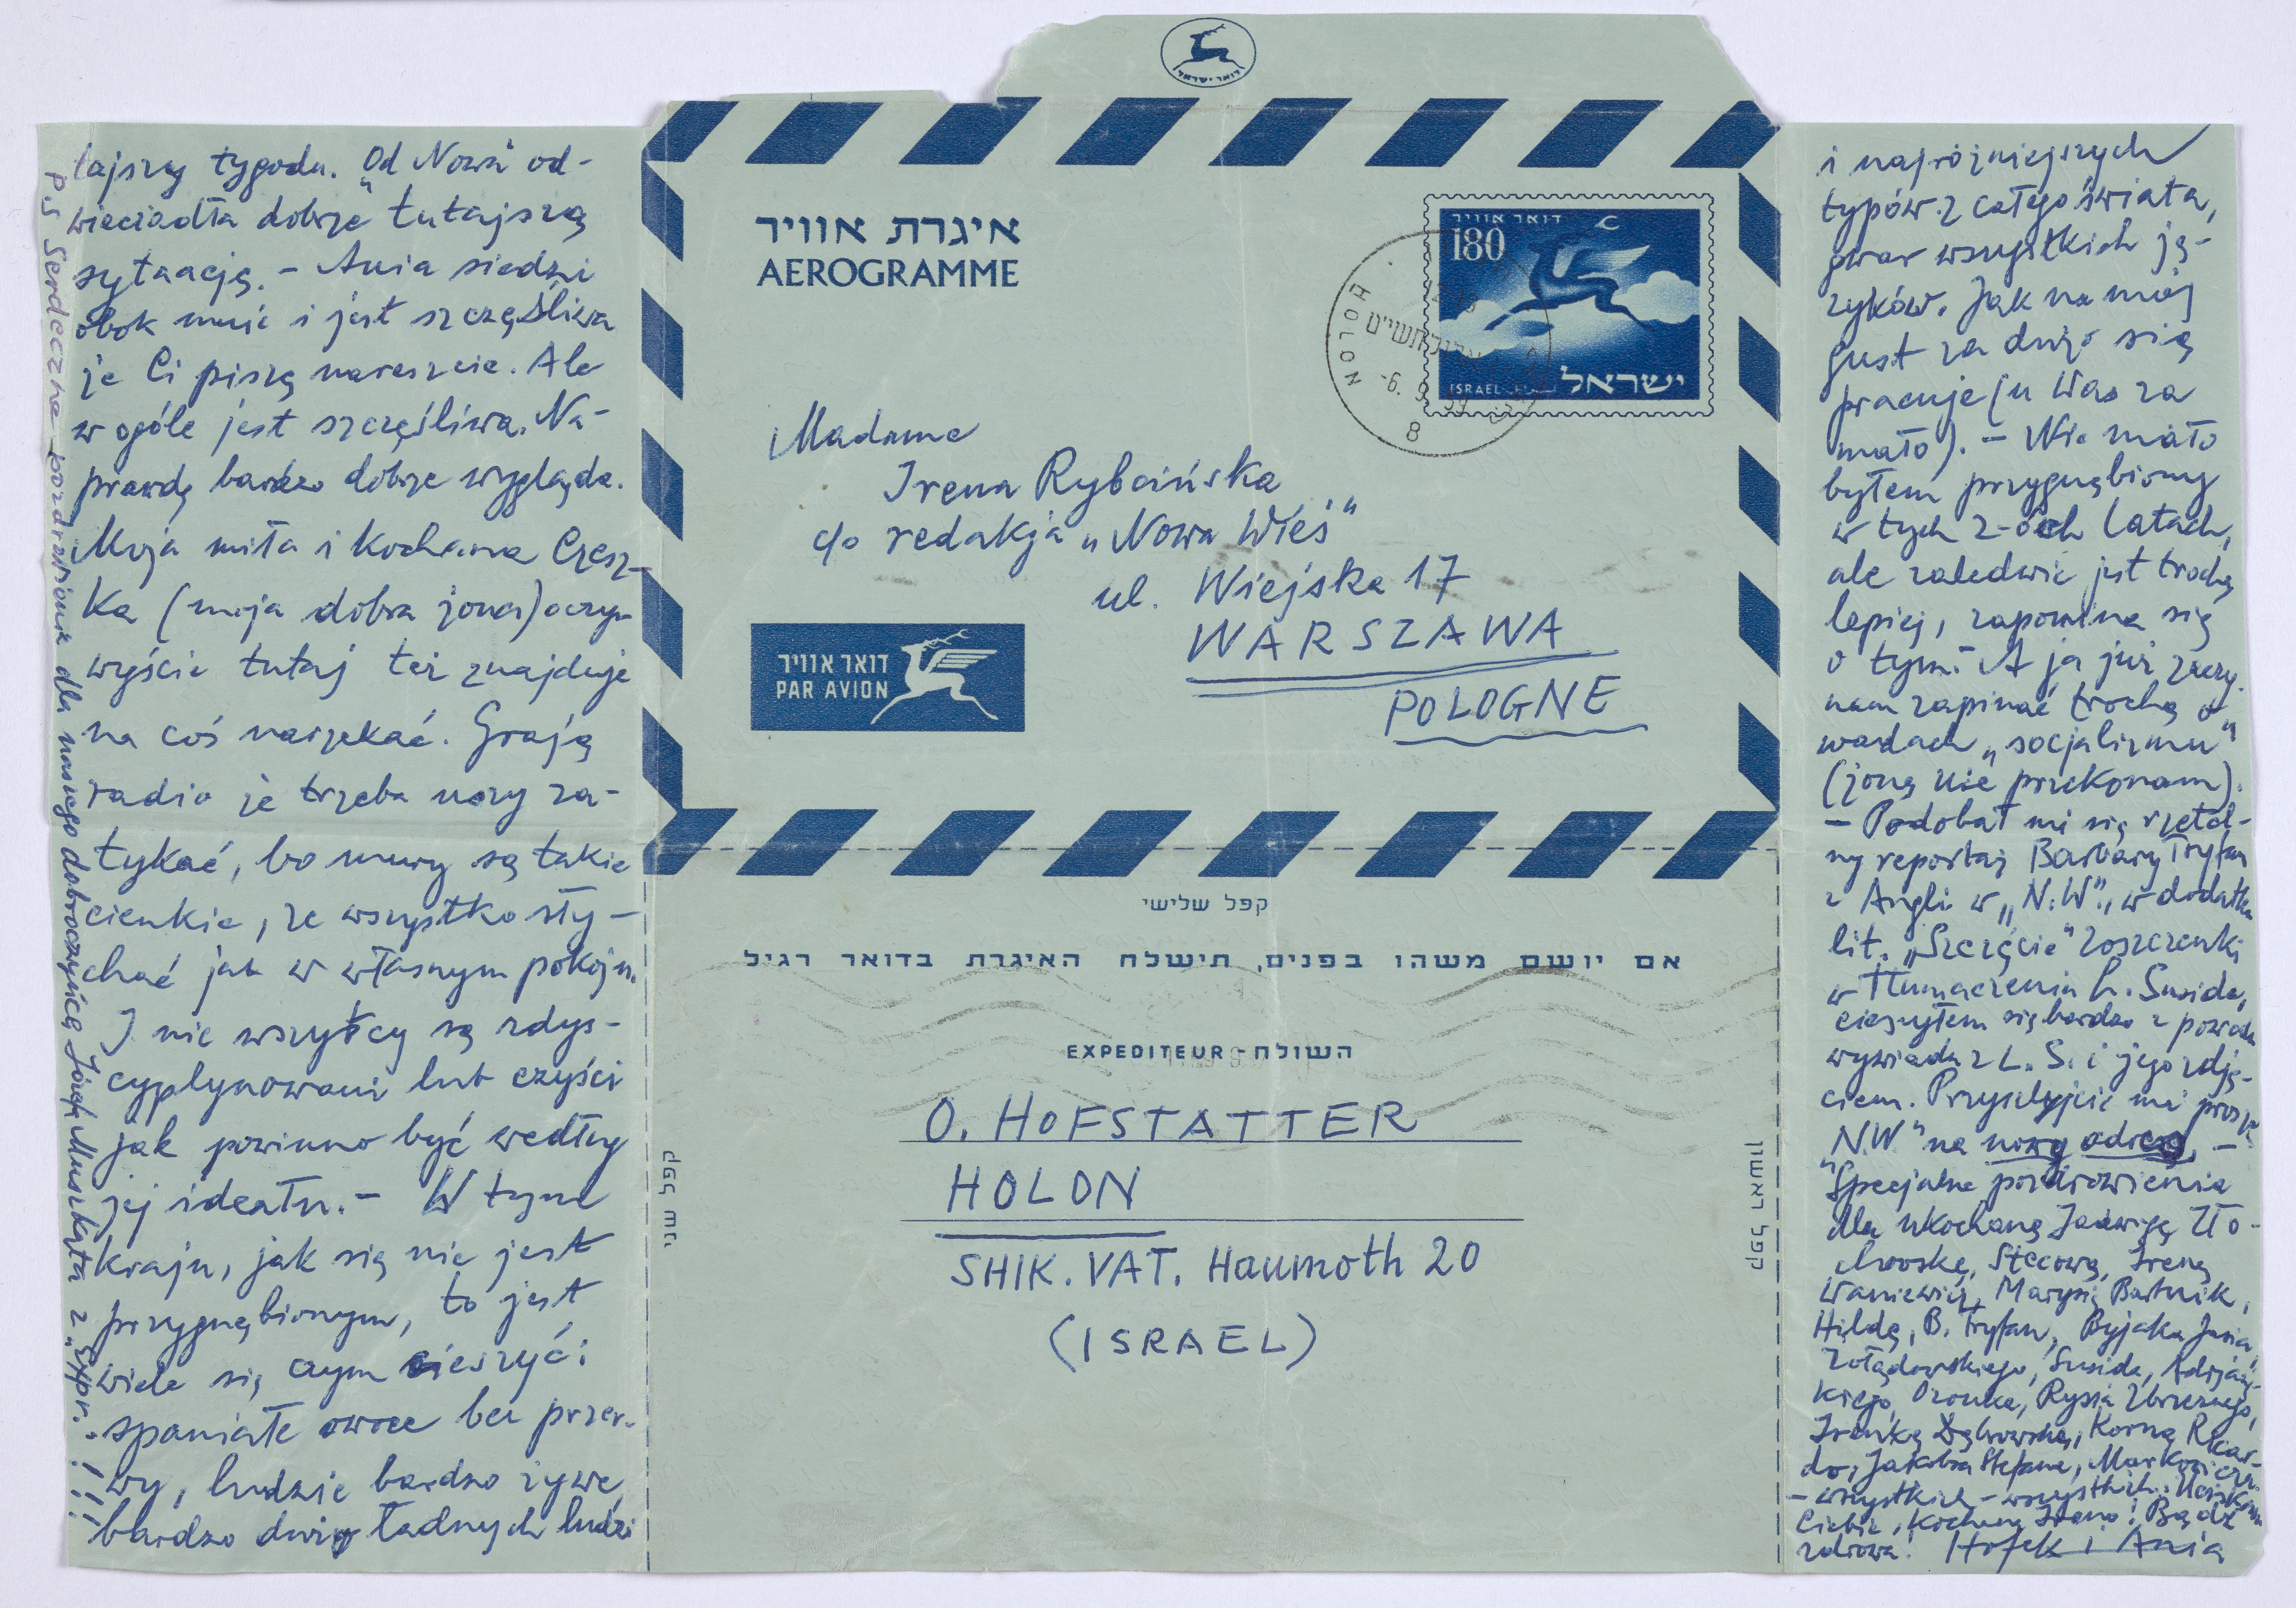 tajszy tygodn. „Od Nowa" od-
wieciadła dobrze tutajszą
sytaację. – Ania siedzi
obok mnie i jest szczęśliwa
że Ci piszę nareszcie. Ale
w ogóle jest szczęśliwa. Na-
prawdę bardzo dobrze wygląda.
Moja miła i kochana Czesz-
ka (moja dobra żona) oczy-
wyście tutaj też znajduje
na coś narzekać. Grają
radio że trzeba uszy za-
tykać, bo mury są takie
cienkie, że wszystko sły-
chać jak w własnym pokoju.
I nie wszyscy są zdys-
cyplynowani lub czyści
jak powinno być według
jej ideału. – W tym
kraju, jak się nie jest
przygnębionym, to jest
wiele się czym cieszyć:
spaniałe owoce bez przer-
wy, ludzie bardzo żywe,
bardzo dużo ładnych ludzi
P.S Serdeczne pozdrowienia dla naszego dobroczyńcę Józefa Muszkata z „Expr."!!!
דואר ישראל
איגרת אוויר
AEROGRAMME
דואר אוויר
180
ISRAEL
ישראל
HOLON
-6. 9. 59
8
Madame
Irena Rybcińska
c/o redakcja „Nowa Wieś"
ul. Wiejska 17
WARSZAWA
POLOGNE
דואר אוויר
PAR AVION
קפל שלישי
אם יושם משהו בפנים, תישלח האיגרת בדואר רגיל
EXPEDITEUR - השולח
O. HOFSTATTER
HOLON
SHIK. VAT. Haumoth 20
(ISRAEL)
קפל שני
קפל ראשון
i najróżniejszych
typów z całego świata,
gwar wszystkich ję-
zyków. Jak na mój
gust za dużo się
pracuje (u Was za
mało). – Nie mało
byłem przygnębiony
w tych 2-óch latach,
ale zaledwie jest trochę
lepiej, zapomina się
o tym. A ja już zaczy-
nam zapinać trochę o
wadach „socjalizmu"
(żonę nie przekonam).
– Podobał mi się rzetel-
ny reportaż Barbary Tryfan
z Angli w „N.W.", w dodatku
lit. „Szczęście" Zoszczenki
w tłumaczeniu L. Susida,
cieszyłem się bardzo z powodu
wywiadu z L. S. i jego zdję-
ciem. Przysyłyjcie mi proszę
„N.W." na nowy adres. –
Specjalne pozdrowienia
dla ukochaną Jadwigę Zło-
chowską, Stecową, Irenę
Waniewicz, Marysię Bartnik,
Hildę, B. Tryfan, Byjaka Jasia,
Żołądowskiego, Susida, Adrjań-
kiego, Ozonka, Rysia Zbrzeznego,
Irenkę Dąbrowską, Kornę, Ricar-
do, Jakóba Stefana, Markowicza
– wszystkich – wszystkich. Uściskam
Ciebie, kochana Ireno! Bądź
zdrowa! Hofek i Ania